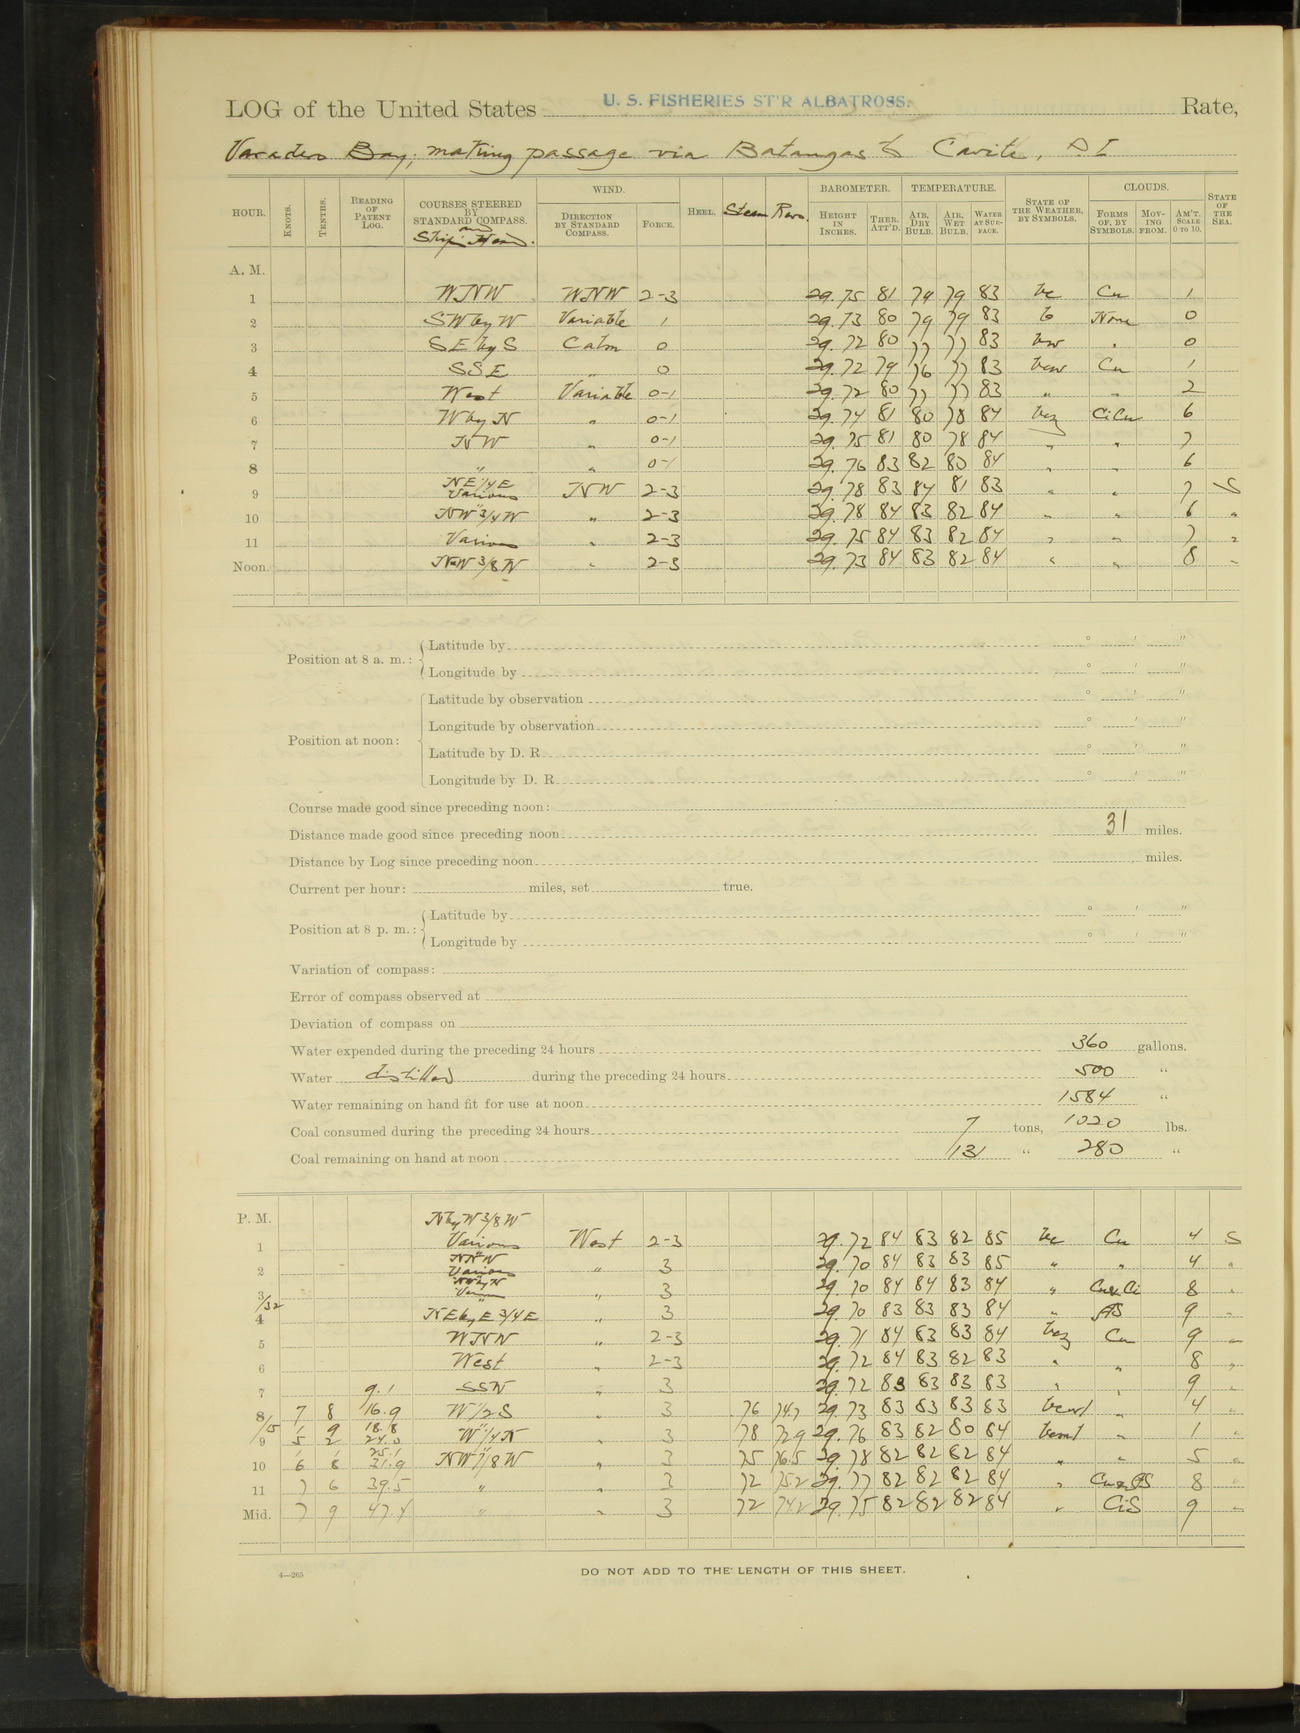 LOG of the United States U. S. FISHERIES ST'R ALBATROSS. Rate,
Varadero Bay; making passage via Batangas to Cavite, P I
HOUR. KNOTS. TENTHS. READING OF PATENT LOG. COURSES STEERED BY STANDARD COMPASS. and Ship's Head. WIND. DIRECTION BY STANDARD COMPASS. FORCE. HEEL. Steam Revs. BAROMETER. HEIGHT IN INCHES. THER. ATT'D. TEMPERATURE. AIR, DRY BULB. AIR, WET BULB. WATER AT SURFACE. STATE OF THE WEATHER, BY SYMBOLS. CLOUDS. FORMS OF, BY SYMBOLS. MOVING FROM. AM'T. SCALE 0 TO 10. STATE OF THE SEA.
A. M.
1 WNW WNW 2-3 29.75 81 79 79 83 bc Cu 1
2 SW by W Variable 1 29.73 80 79 79 83 b None 0
3 SE by S Calm 0 29.72 80 77 77 83 bw " 0
4 SSE " 0 29.72 79 76 77 83 bcw Cu 1
5 West Variable 0-1 29.72 80 77 77 83 " " 2
6 W by N " 0-1 29.74 81 80 78 84 bcz CiCu 6
7 NW " 0-1 29.75 81 80 78 84 " " 7
8 " " 0-1 29.76 83 82 80 84 " " 6
9 NE 1/4 E Various NW 2-3 29.78 83 84 81 83 " " 7 S
10 NW 3/4 W " 2-3 29.78 84 83 82 84 " " 6 "
11 Various " 2-3 29.75 84 83 82 84 " " 7 "
Noon. NW 3/8 N " 2-3 29.73 84 83 82 84 " " 8 "
Position at 8 a. m.: Latitude by ° ' "
Longitude by ° ' "
Position at noon: Latitude by observation ° ' "
Longitude by observation ° ' "
Latitude by D. R. ° ' "
Longitude by D. R. ° ' "
Course made good since preceding noon:
Distance made good since preceding noon 31 miles.
Distance by Log since preceding noon miles.
Current per hour: miles, set true.
Position at 8 p. m.: Latitude by ° ' "
Longitude by ° ' "
Variation of compass:
Error of compass observed at
Deviation of compass on
Water expended during the preceding 24 hours 360 gallons.
Water distilled during the preceding 24 hours 500 "
Water remaining on hand fit for use at noon 1584 "
Coal consumed during the preceding 24 hours 7 tons, 1020 lbs.
Coal remaining on hand at noon 131 " 280 "
P. M.
N by W 3/8 W
1 Various West 2-3 29.72 84 83 82 85 bc Cu 4 S
2 NNW Various " 3 29.70 84 83 83 85 " " 4 "
3 NW by N " 3 29.70 84 84 83 84 " Cu & Ci 8 "
1/32
4 NE by E 3/4 E " 3 29.70 83 83 83 84 " 9 "
5 WNW " 2-3 29.71 84 83 83 84 bcz Cu 9 "
6 West " 2-3 29.72 84 83 82 83 " " 8 "
7 9.1 SSW " 3 29.72 83 83 83 83 " " 9 "
8 7 8 16.9 W 1/2 S " 3 76 74.7 29.73 83 83 83 83 " 4 "
/15 1 9 18.8
9 5 2 24.0 W 1/4 N " 3 78 72.9 29.76 83 82 80 84 " 1 "
1 25.1
10 6 8 31.9 NW 7/8 W " 3 75 76.5 29.78 82 82 82 84 " " 5 "
11 7 6 39.5 " " 3 72 75.2 29.77 82 82 82 84 " 8 "
Mid. 7 9 47.4 " " 3 72 74.2 29.75 82 82 82 84 " CiS 9 "
4—265
DO NOT ADD TO THE LENGTH OF THIS SHEET.